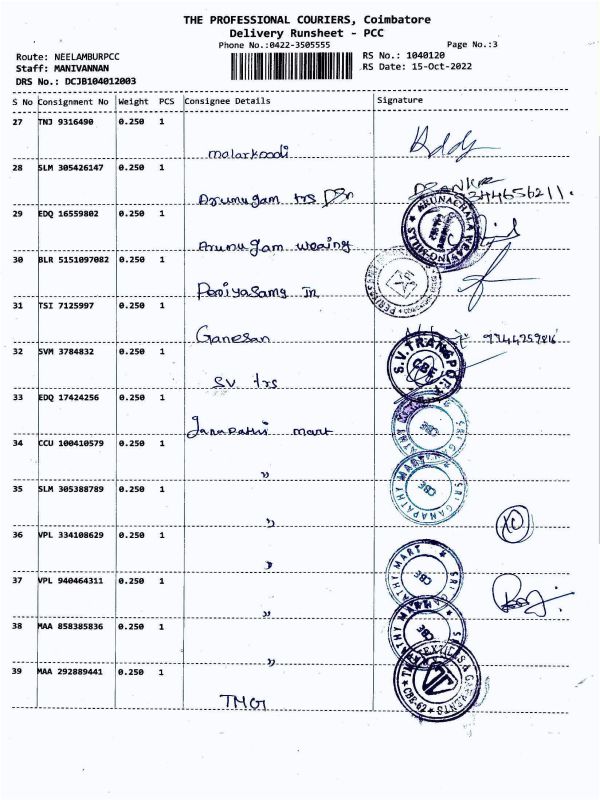 THE PROFESSIONAL COURIERS, Coimbatore
Delivery Runsheet - PCC
Phone No.:0422-3505555 Page No.:3
Route: NEELAMBURPCC RS No.: 1040120
Staff: MANIVANNAN RS Date: 15-Oct-2022
DRS No.: DCJB104012003
S No Consignment No Weight PCS Consignee Details Signature
27 TNJ 9316490 0.250 1
malarkoodi
28 SLM 305426147 0.250 1
Arumugam trs
29 EDQ 16559802 0.250 1
ARUNACHALA WEAVING MILLS
Arumugam weaing
30 BLR 5151097082 0.250 1
Periyasamy In
31 TSI 7125997 0.250 1
Ganesan
32 SVM 3784832 0.250 1
S.V.TRANSPORT CBE
SV trs
33 EDQ 17424256 0.250 1
Janapathi mart
34 CCU 100410579 0.250 1
SRI GANAPATHY MART CBE
"
35 SLM 305388789 0.250 1
SRI GANAPATHY MART CBE
"
36 VPL 334108629 0.250 1
"
37 VPL 940464311 0.250 1
SRI GANAPATHY MART CBE
"
38 MAA 858385836 0.250 1
CBE
"
39 MAA 292889441 0.250 1
TMG